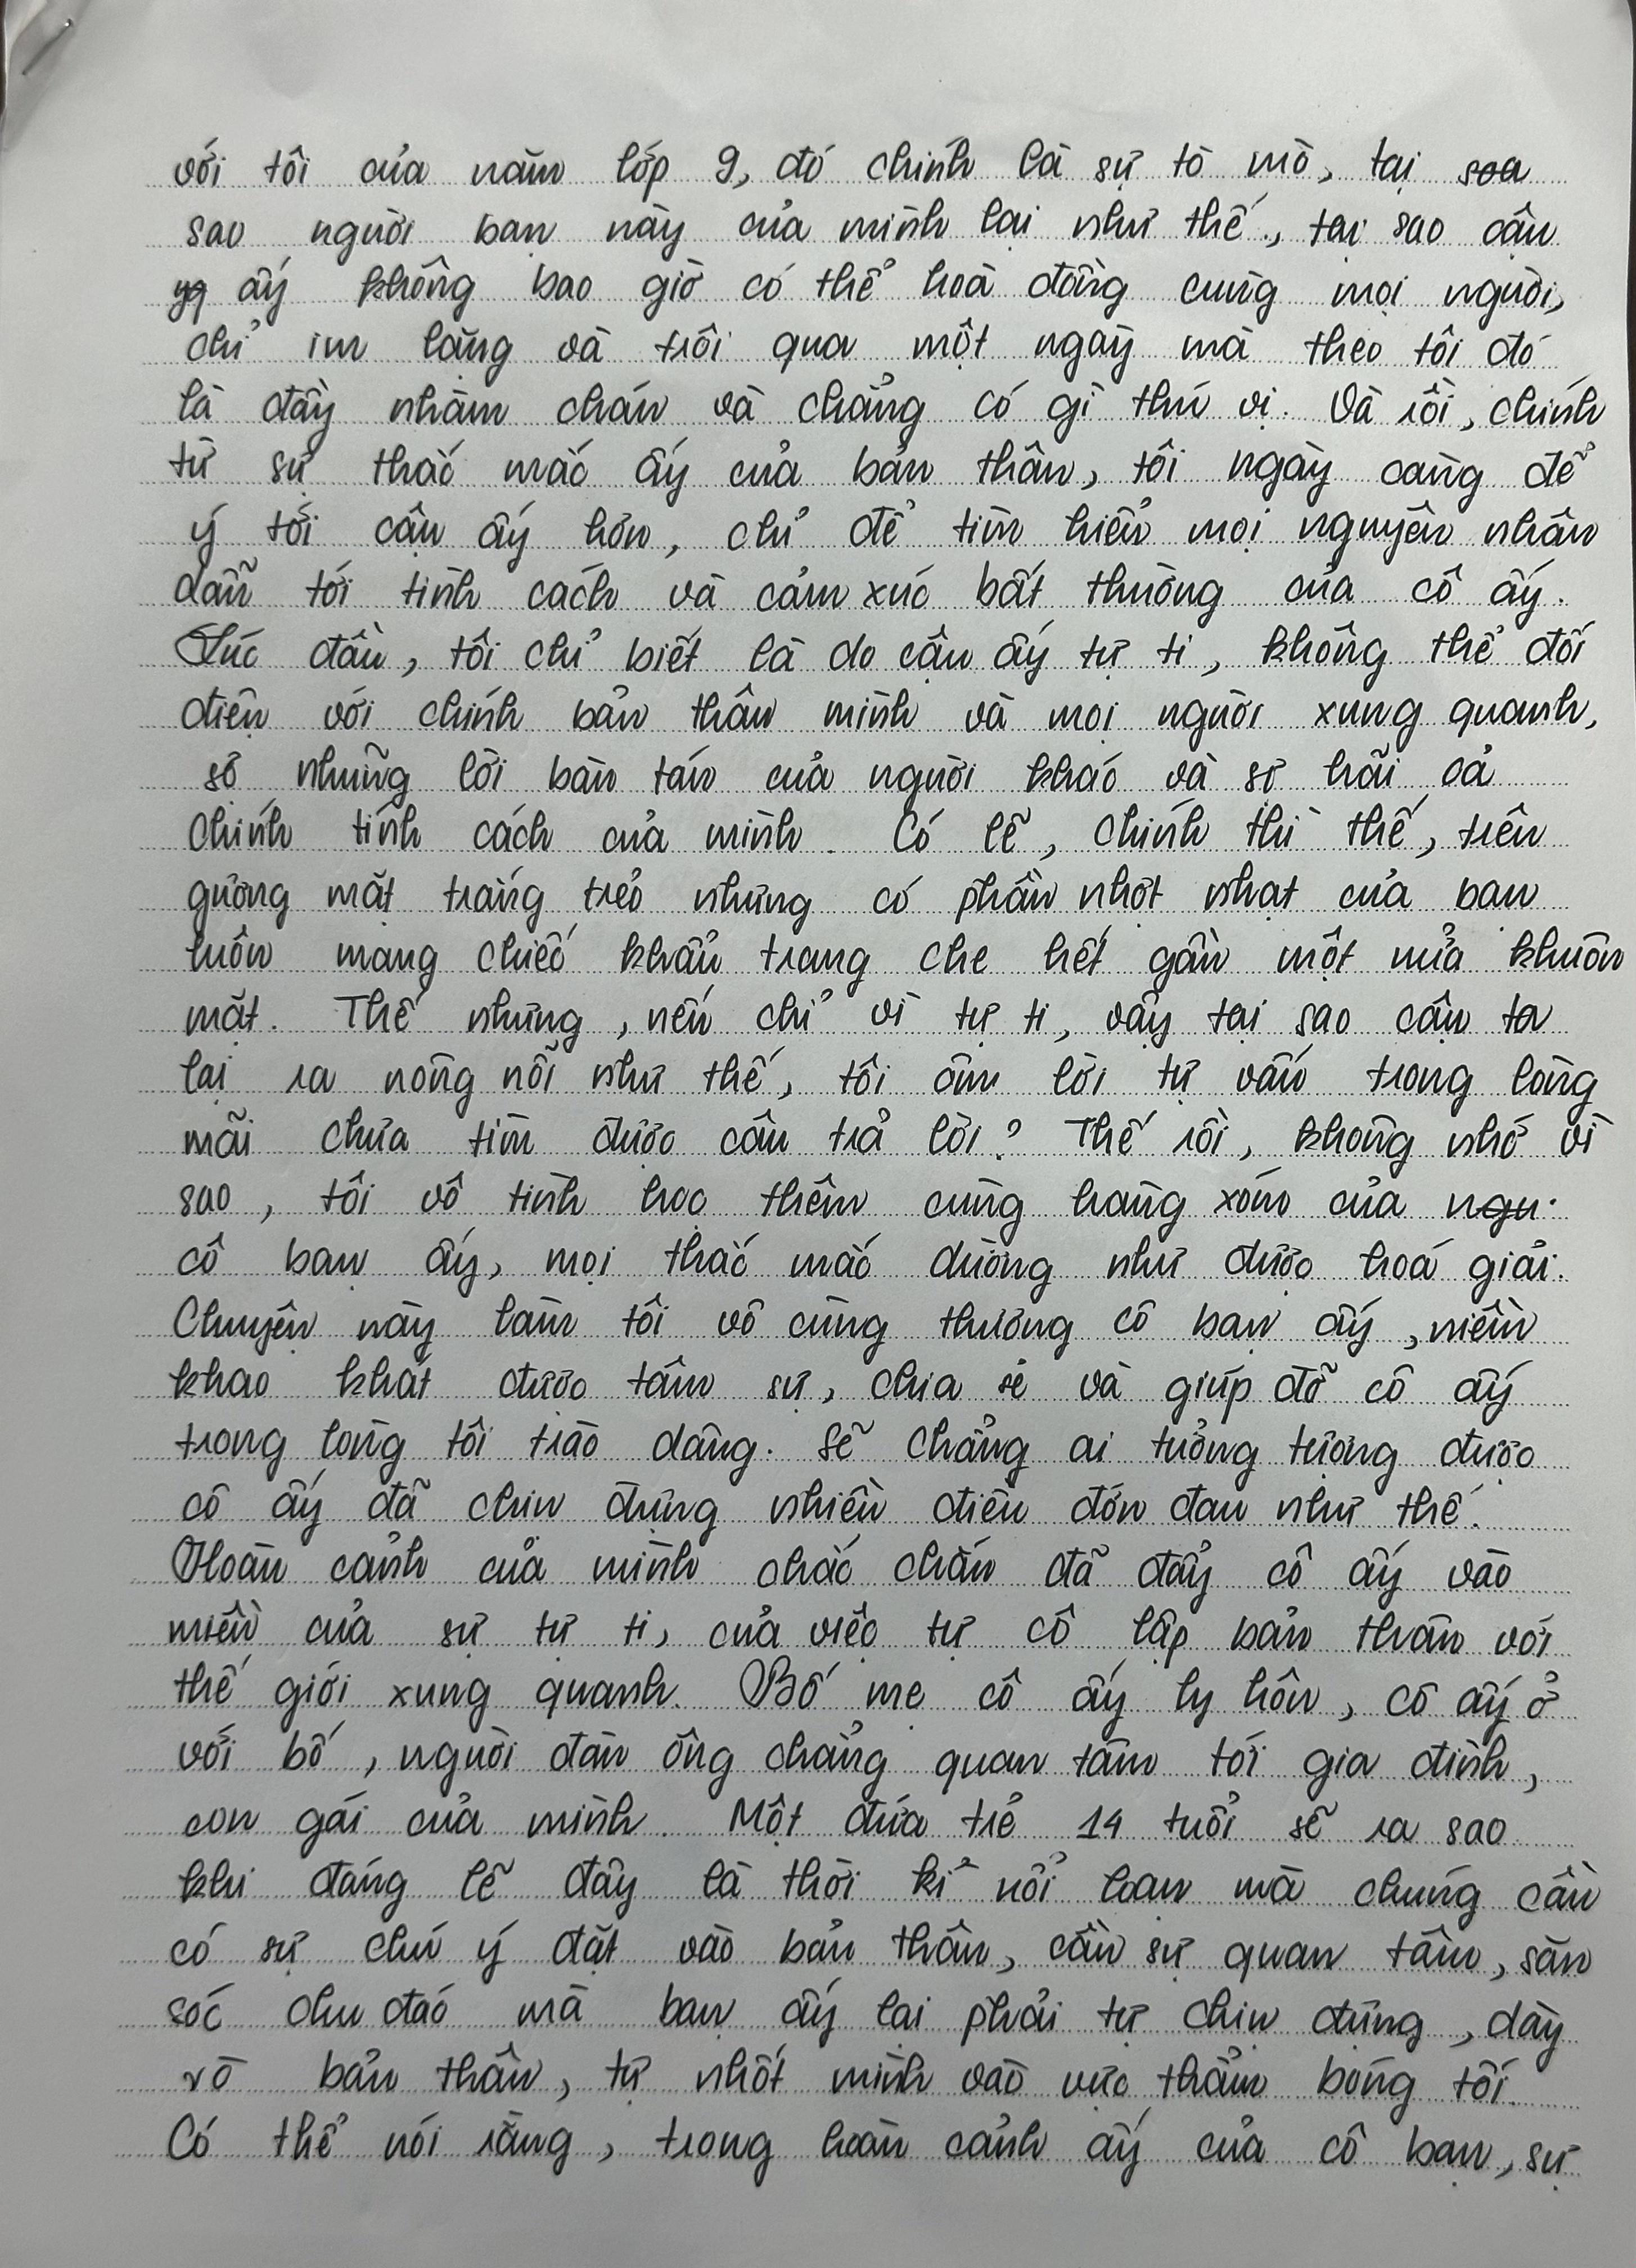 với tôi của năm lớp 9, đó chính là sự tò mò, tại soa
sao người bạn này của mình lại như thế, tại sao cậu
ấy không bao giờ có thể hoà đồng cùng mọi người,
chỉ im lặng và trôi qua một ngày mà theo tôi đó
là đầy nhàm chán và chẳng có gì thú vị. Và rồi, chính
từ sự thắc mắc ấy của bản thân, tôi ngày càng để
ý tới cậu ấy hơn, chỉ để tìm hiểu mọi nguyên nhân
dẫn tới tính cách và cảm xúc bất thường của cô ấy.
Lúc đầu, tôi chỉ biết là do cậu ấy tự ti, không thể đối
diện với chính bản thân mình và mọi người xung quanh,
sợ những lời bàn tán của người khác và sợ hãi cả
chính tính cách của mình. Có lẽ, chính thì thế, trên
gương mặt trắng trẻo nhưng có phần nhợt nhạt của bạn
luôn mang chiếc khẩu trang che hết gần một nửa khuôn
mặt. Thế nhưng, nếu chỉ vì tự ti, vậy tại sao cậu ta
lại ra nông nỗi như thế, tôi ôm lời tự vấn trong lòng
mãi chưa tìm được câu trả lời? Thế rồi, không nhớ vì
sao, tôi vô tình học thêm cùng hàng xóm của ngư
cô bạn ấy, mọi thắc mắc dường như được hoá giải.
Chuyện này làm tôi vô cùng thương cô bạn ấy, niềm
khao khát được tâm sự, chia sẻ và giúp đỡ cô ấy
trong lòng tôi trào dâng. Sẽ chẳng ai tưởng tượng được
cô ấy đã chịu đựng nhiều điều đớn đau như thế.
Hoàn cảnh của mình chắc chắn đã đẩy cô ấy vào
miền của sự tự ti, của việc tự cô lập bản thân với
thế giới xung quanh. Bố mẹ cô ấy ly hôn, cô ấy ở
với bố, người đàn ông chẳng quan tâm tới gia đình,
con gái của mình. Một đứa trẻ 14 tuổi sẽ ra sao
khi đáng lẽ đây là thời kì nổi loạn mà chúng cần
có sự chú ý đặt vào bản thân, cần sự quan tâm, săn
sóc chu đáo mà bạn ấy lại phải tự chịu đựng, dày
vò bản thân, tự nhốt mình vào vực thẳm bóng tối.
Có thể nói rằng, trong hoàn cảnh ấy của cô bạn, sự